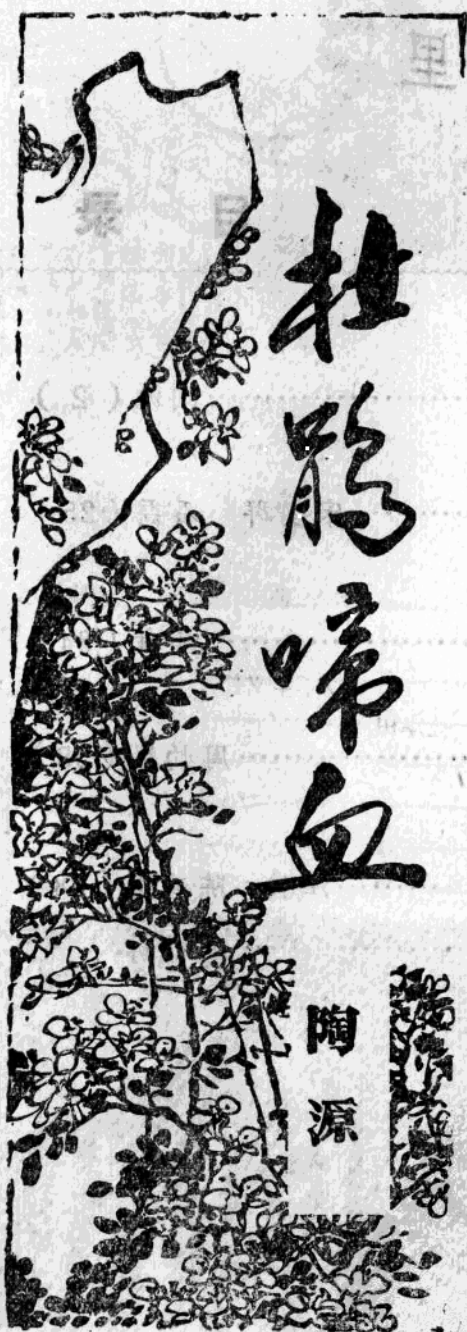 杜鹃啼血
陶源